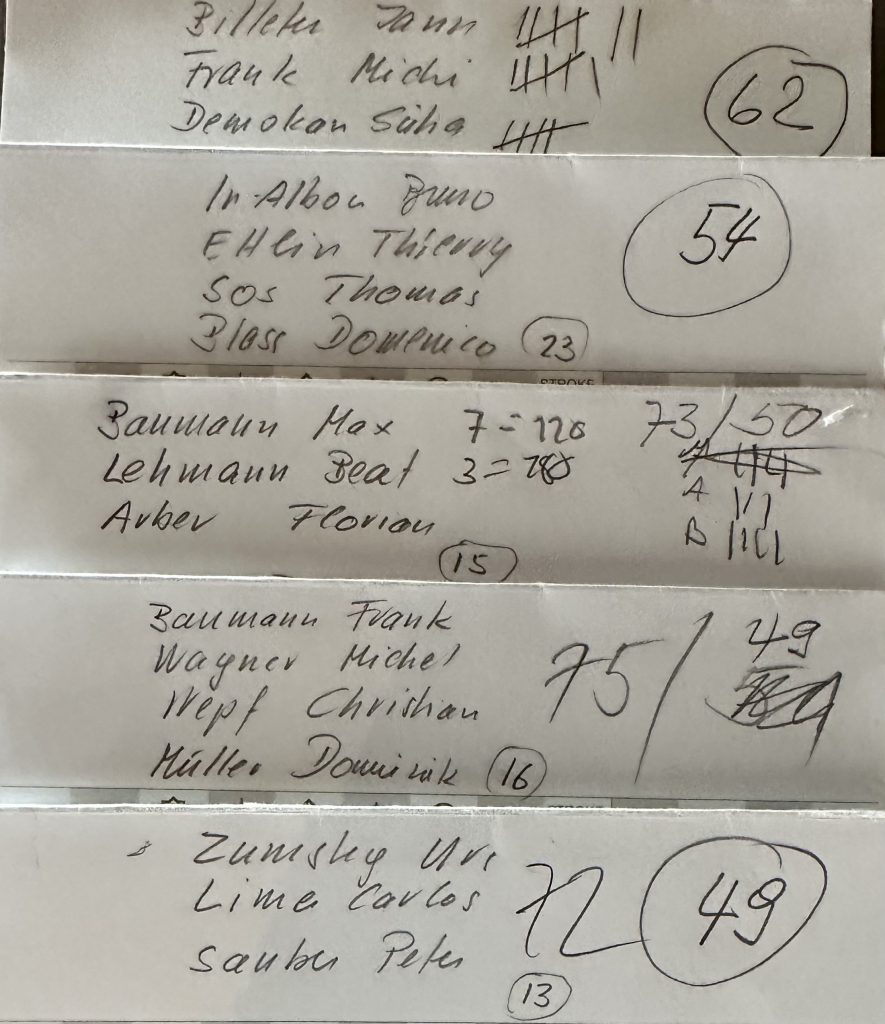 Billeter Jann
Frank Michi
Demokan Süha
62
In-Albon Bruno
Ettlin Thierry
Sos Thomas
Blass Domenico 23
54
STROKE
Baumann Max 7 = 120 73/50
Lehmann Beat 3 =
A
Arber Florian
B
15
Baumann Frank
Wagner Michel
Wepf Christian
Müller Dominik 16
75 / 49
STROKE
Zumsteg Urs
Lima Carlos
Sauber Peter
72 49
13